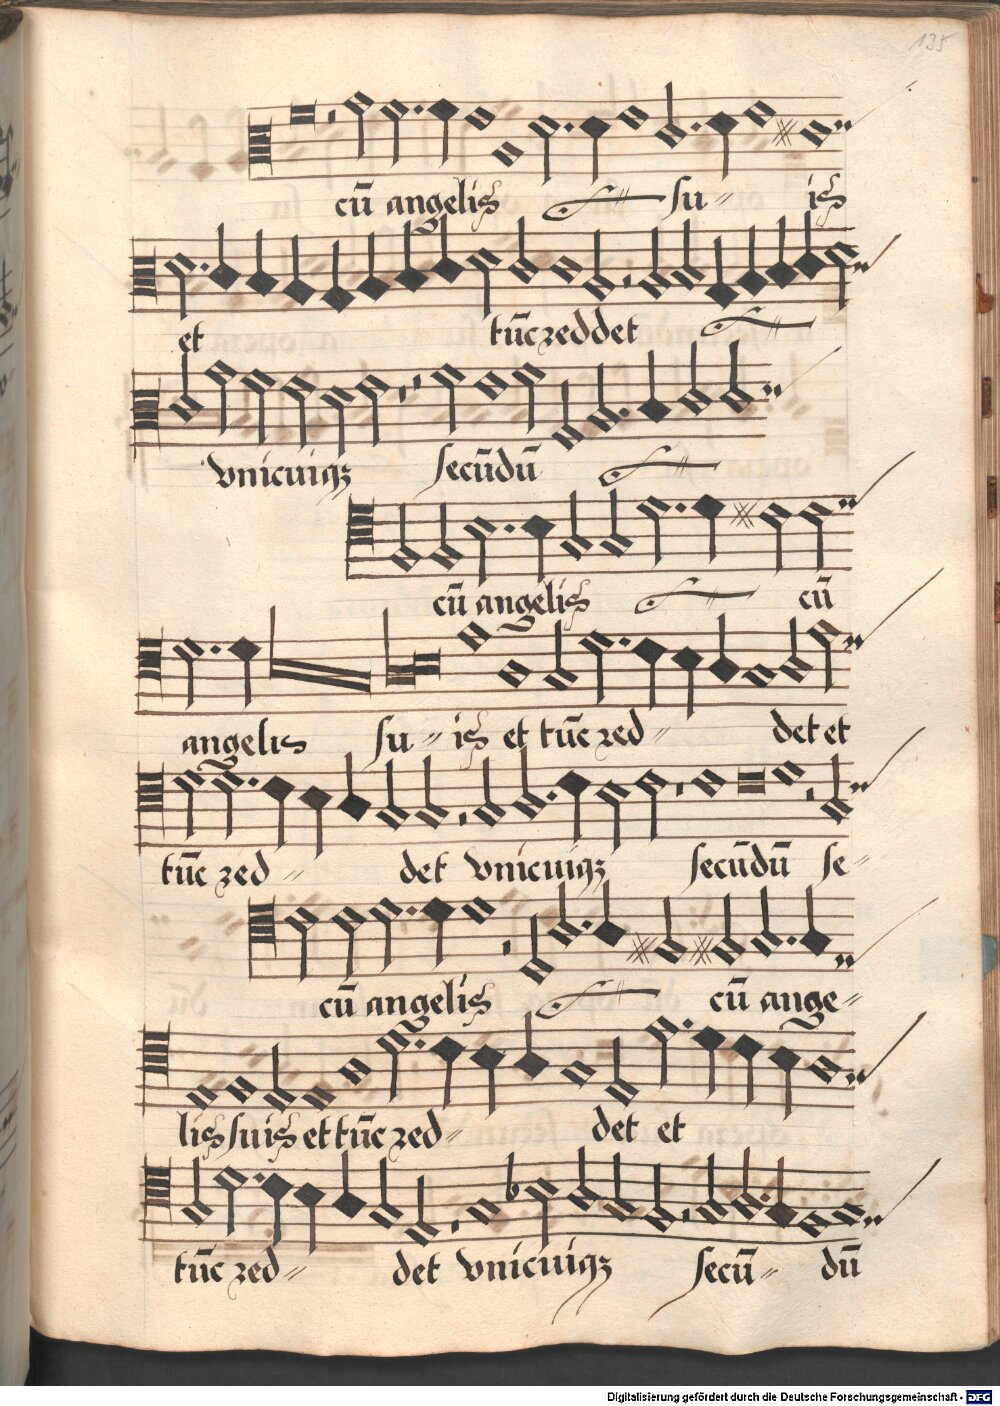 135
cū angelis su is
et tūc reddet
vnicuiqz secūdū
cū angelis cū
angelis su is et tūc red det et
tūc red det vnicuiqz secūdū se
cū angelis cū ange
lis suis et tūc red det et
tūc red det vnicuiqz secū dū
Digitalisierung gefördert durch die Deutsche Forschungsgemeinschaft - DFG